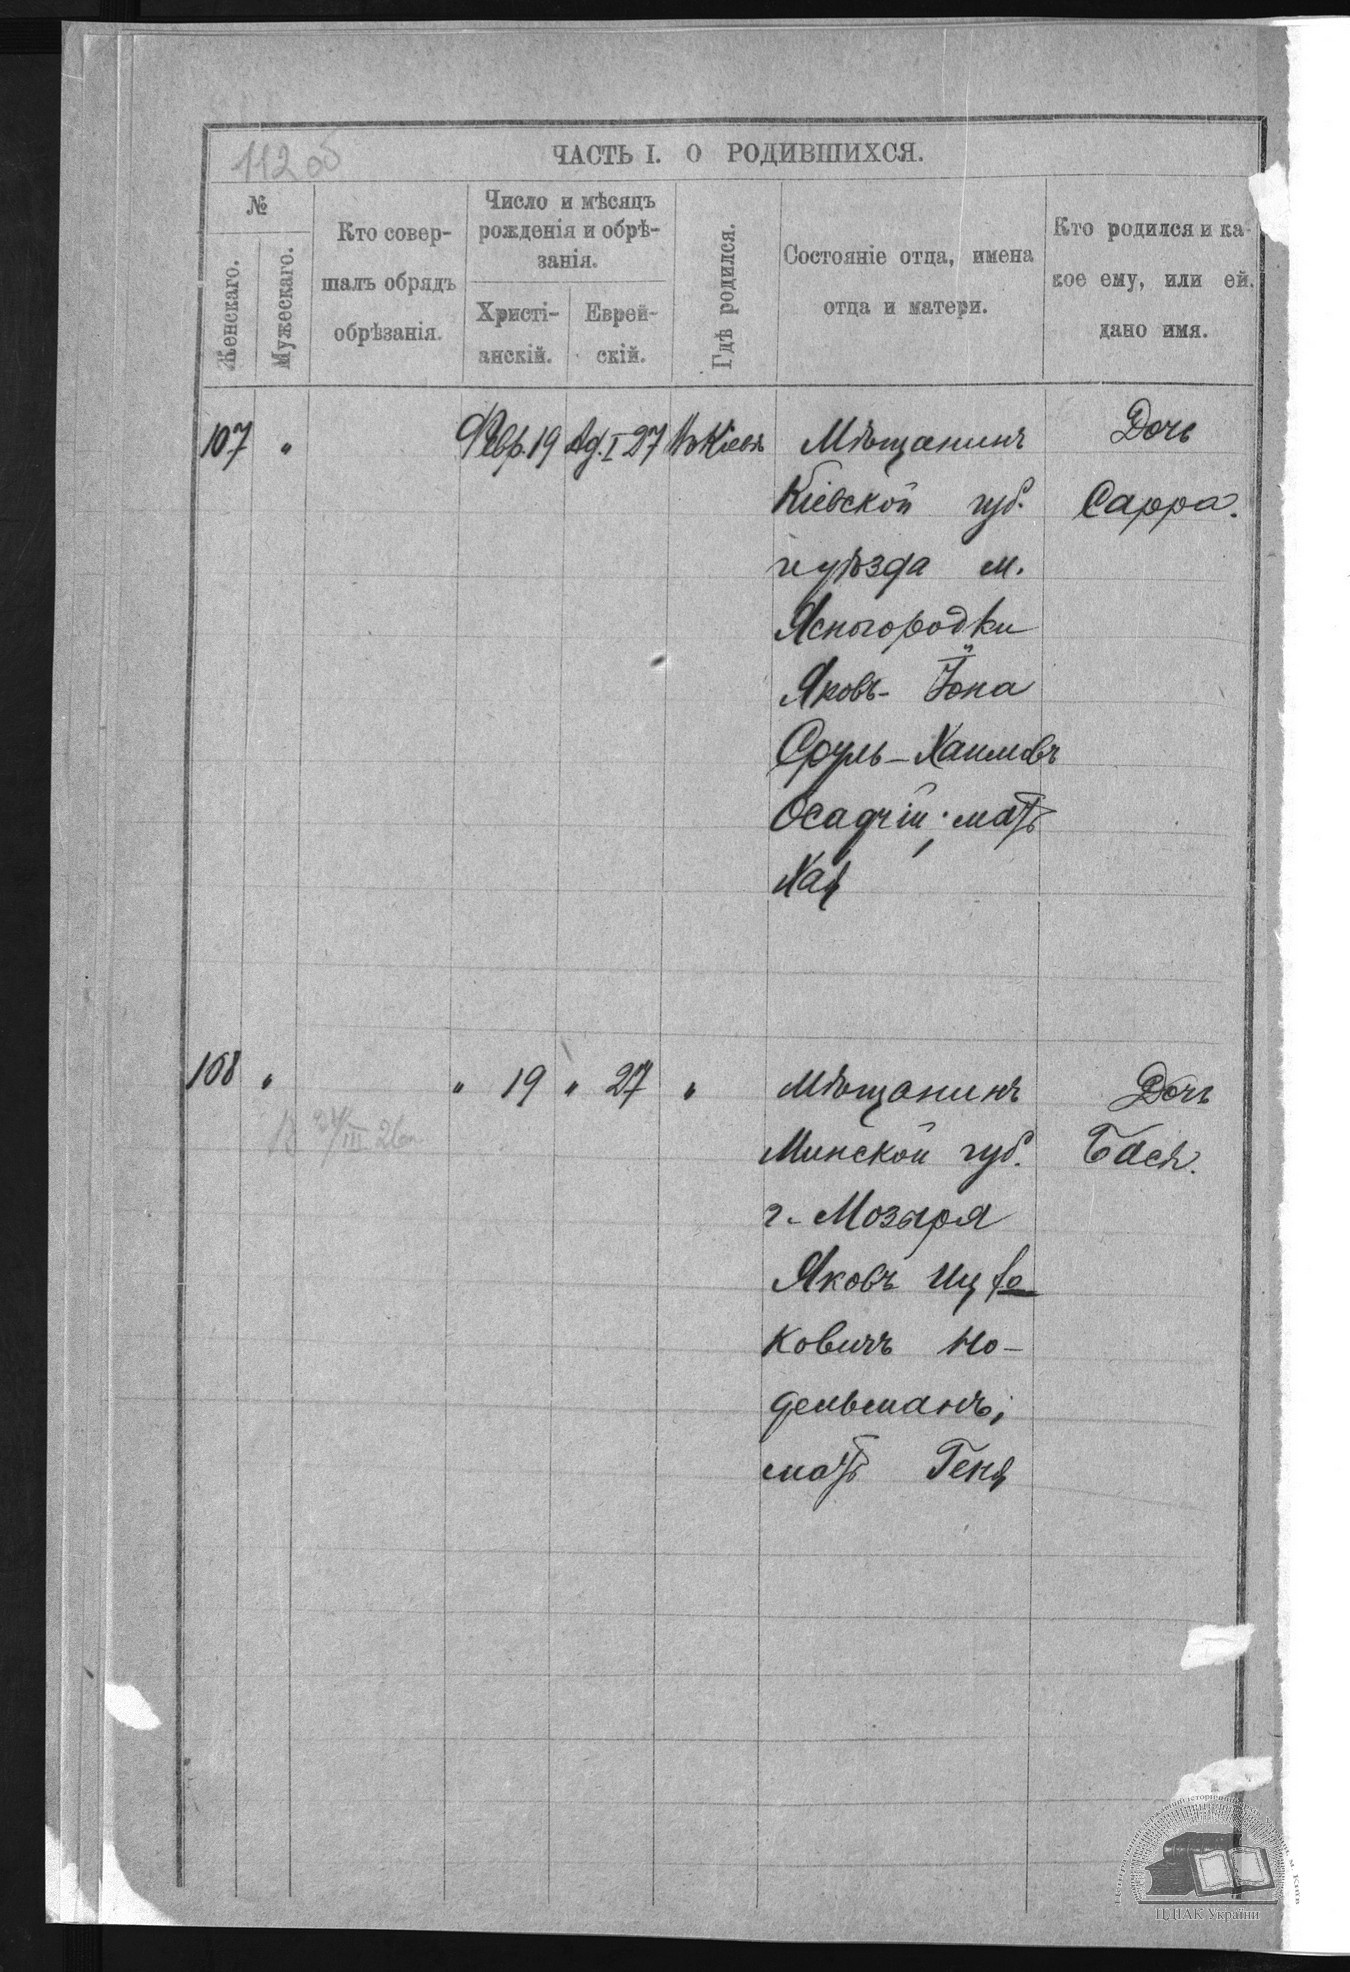 112 об
ЧАСТЬ I. О РОДИВШИХСЯ.
№
Женскаго.
Мужескаго.
Кто совер-
шалъ обрядъ
обрѣзанія.
Число и мѣсяцъ
рожденія и обрѣ-
занія.
Христі-
анскій.
Еврей-
скій.
Гдѣ родился.
Состояніе отца, имена
отца и матери.
Кто родился и ка-
кое ему, или ей,
дано имя.
107 " Февр. 19 Ад. I 27 Въ Кіевѣ Мѣщанинъ Дочь
Кіевской губ. Сарра.
и уѣзда м.
Ясногородки
Яковъ- Іона
Сруль-Хаимовъ
Осадчій; мать
Хая
108 " " 19 " 27 " Мѣщанинъ Дочь
Минской губ. Бася.
г. Мозыря
Яковъ Иц
ковичъ Но-
дельманъ;
мать Геня
ЦДІАК України